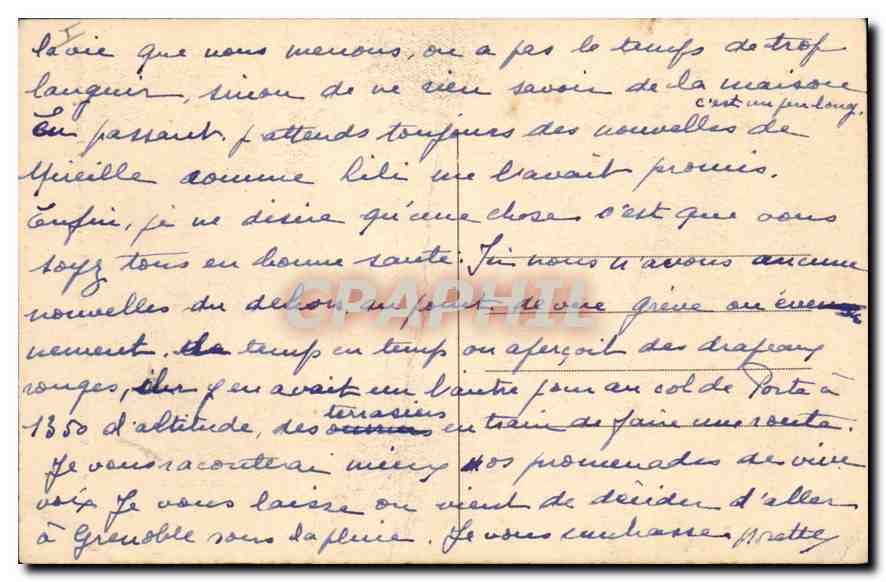 la vie que nous menons, on a pas le temps de trop
languir, sinon de ne rien savoir de la maison
c'est un peu long.
En passant. j'attends toujours des nouvelles de
Mireille comme Lili me l'avait promis.
Enfin, je ne désire qu'une chose c'est que vous
soyez tous en bonne santé. Ici nous n'avons aucune
nouvelles du dehors, au point de vue grève ou évé
nement. de temps en temps on aperçoit des drapeaux
rouges, il y en avait un l'autre jour au col de Porte à
1350 d'altitude, des terrassiers en train de faire une route.
Je vous raconterai mieux nos promenades de vive
voix Je vous laisse on vient de décider d'aller
à Grenoble sous la pluie. Je vous embrasse
CPAPHIL